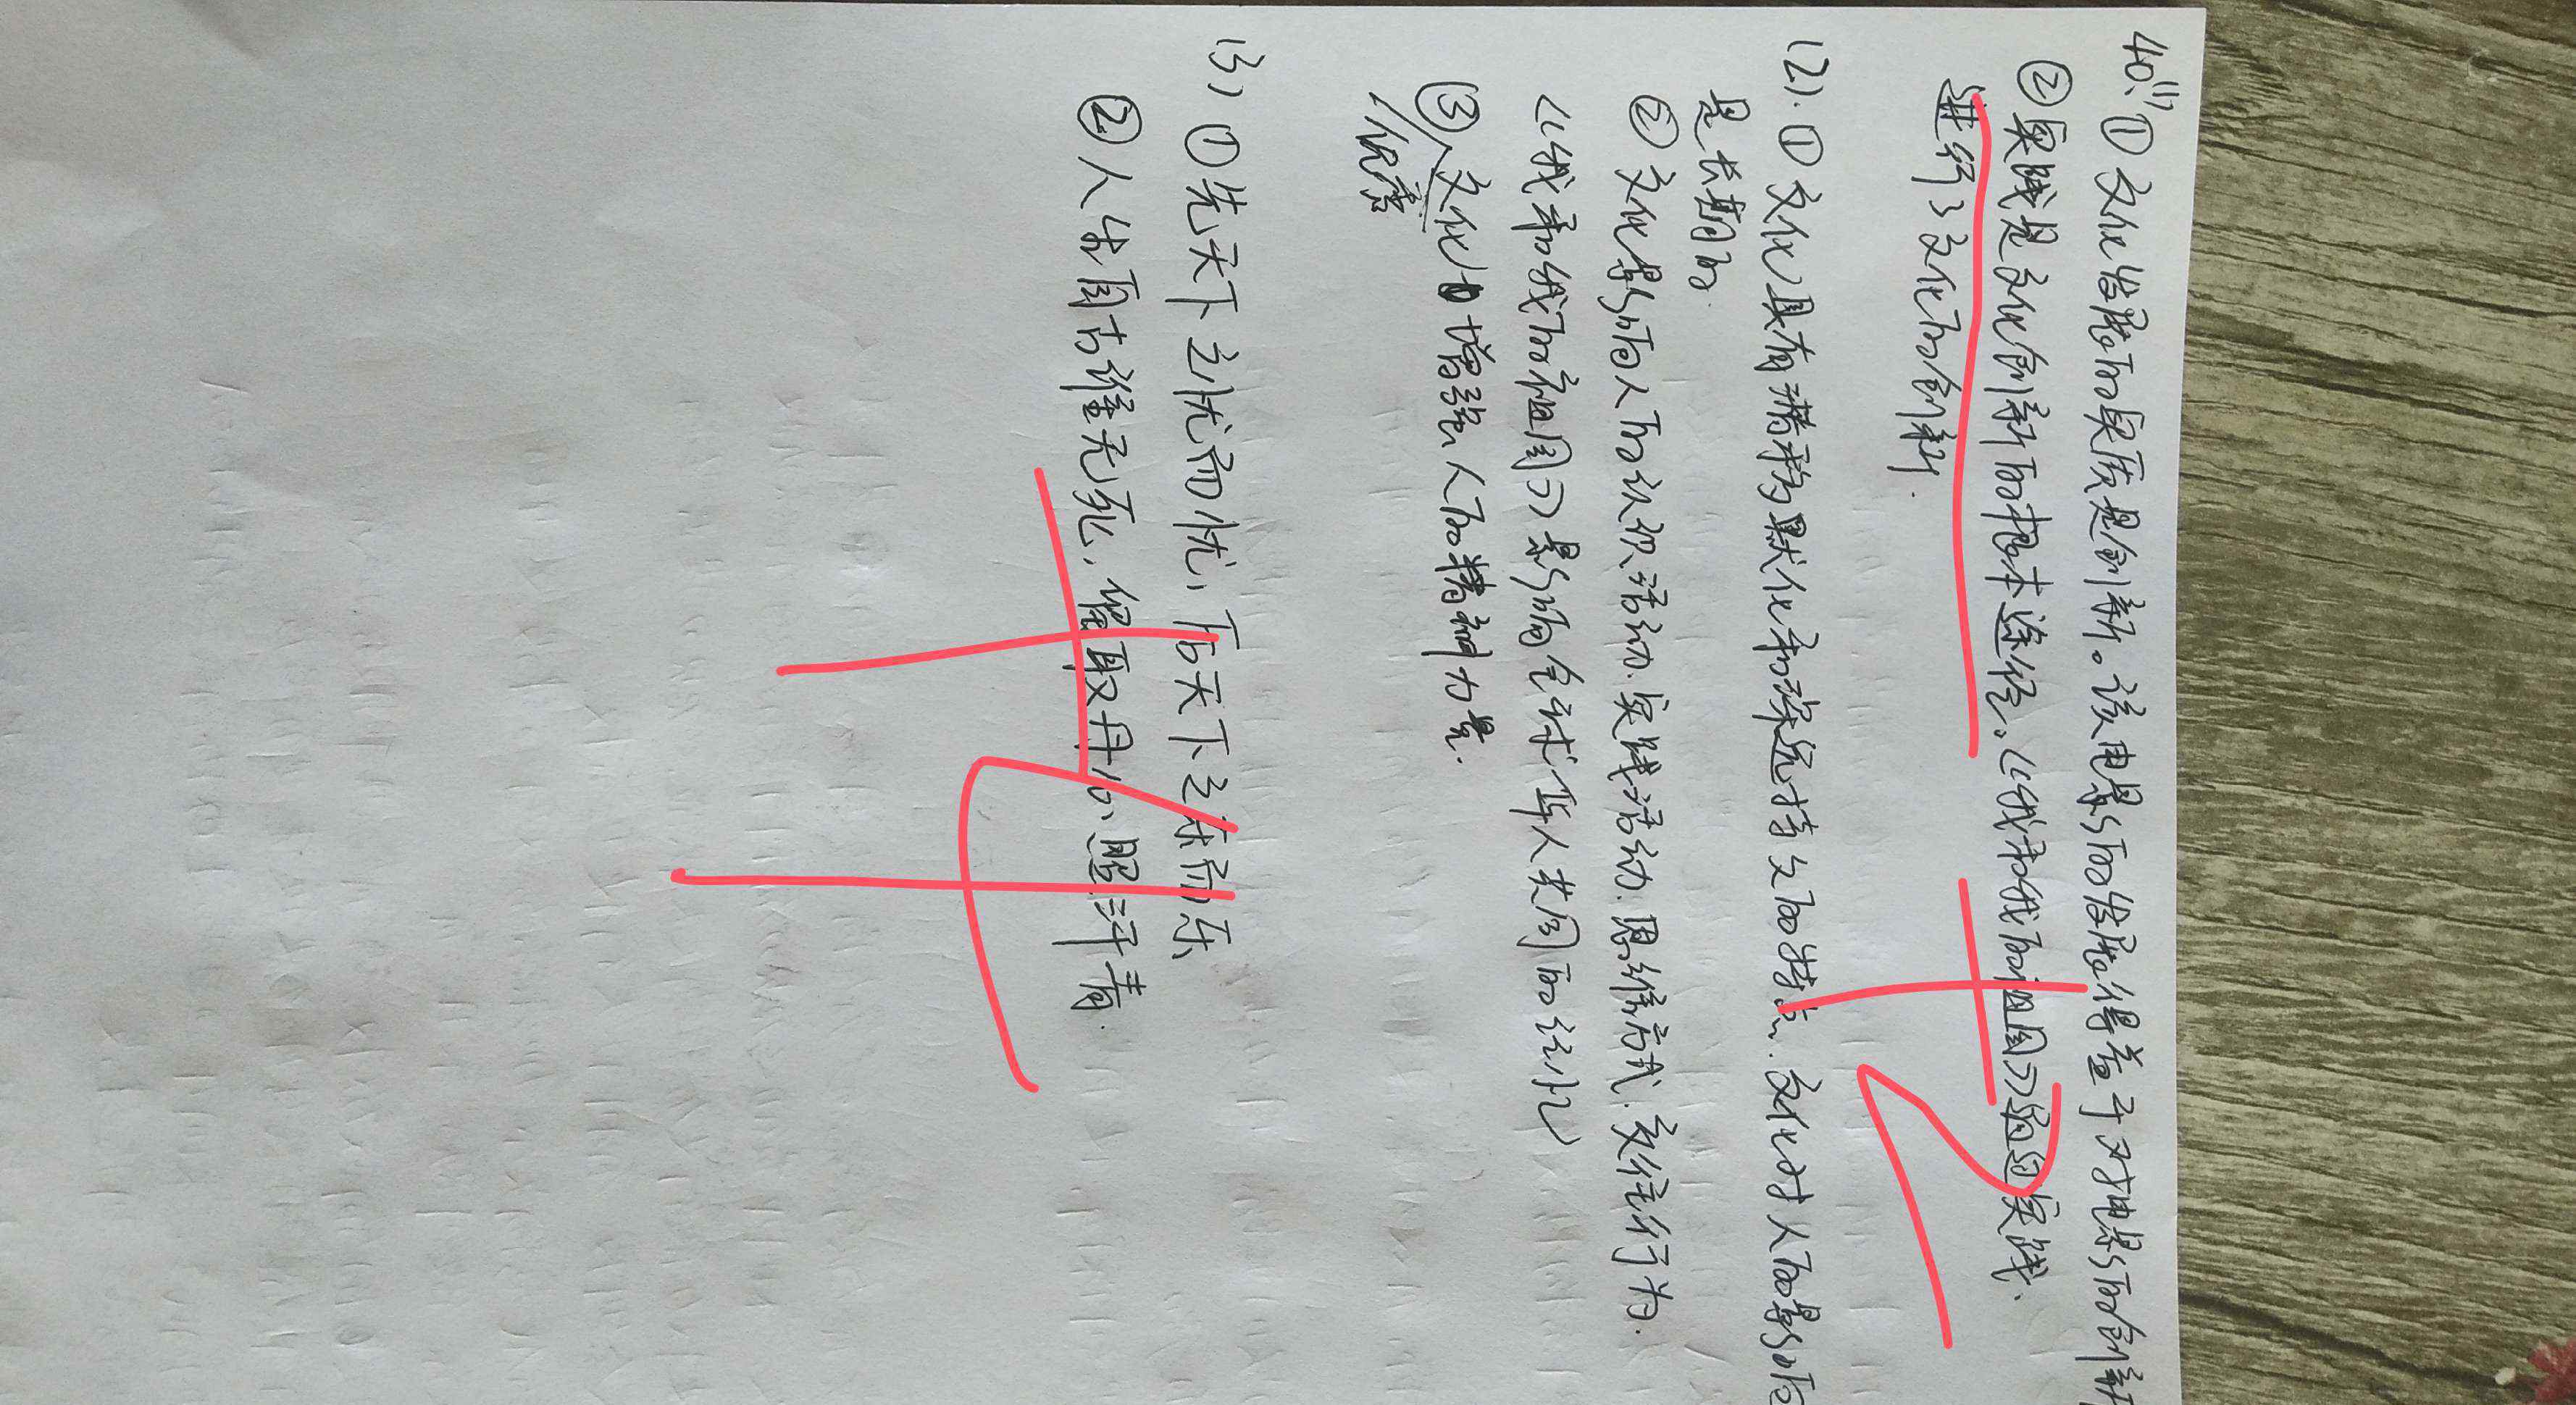 40.(1)
①文化发展的实质是创新。该电影的发展得益于对电影的创新
②实践是文化创新的根本途径。《我和我的祖国》通过实践.
进行了文化的创新.
(2).①文化具有潜移默化和深远持久的特点.文化对人的影响
是长期的.
②文化影响人的认识活动.实践活动.思维方式.交往行为.
《我和我的祖国》影响全球华人共同的记忆
③文化增强人的精神力量.
优秀
(3)①先天下之忧而忧,后天下之乐而乐
②人生自古谁无死,留取丹心照汗青.
+2
+4